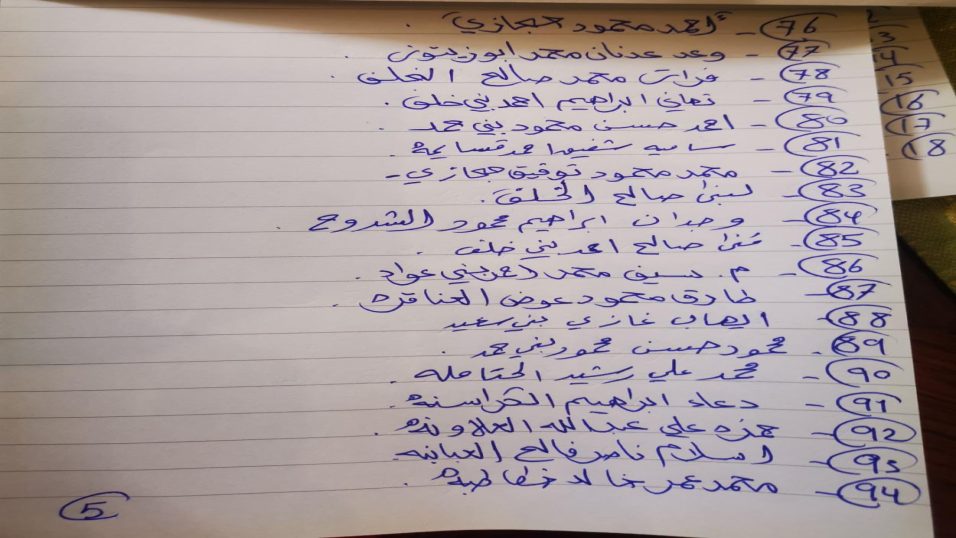 76- أحمد محمود حجازي.
77- وعد عدنان محمد ابوزيتون.
78- فرات محمد صالح الخلف
79- تهاني ابراهيم احمد بني خلف.
80- احمد حسن محمود بني حمد.
81- ساميه شفيق احمد قسايمة.
82- محمد محمود توفيق حجازي-
83- لبنى صالح الخلف.
84- وجدان ابراهيم محمود الشدوح.
85- صالح احمد بني خلف.
86- م. محمد احمد بني عواد.
87- طارق محمود عوض العناقره.
88- ايهاب غازي بني سعيد
89- محمود حسن محمود بني حمد.
90- محمد علي رشيد الختامله.
91- دعاء ابراهيم الكراسنة.
92- حمزه علي عبدالله العلاونة.
93- اسلام ناصر فالح العبابنه
94- محمد عمر خالد خطاطبة.
5
12
13
14
15
16
17
18